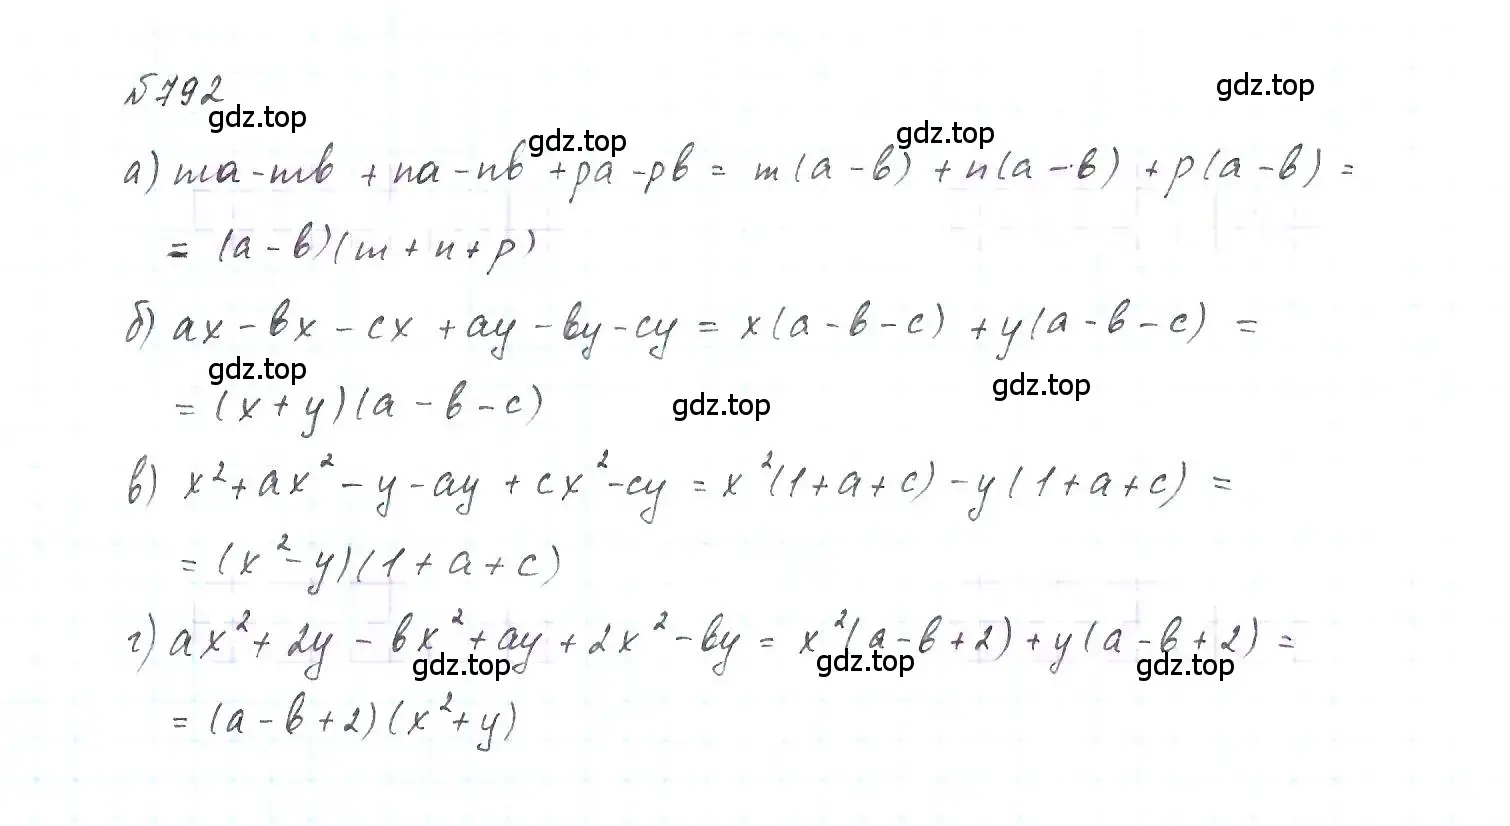 №792
gdz.top
gdz.top
gdz.top
gdz.top
а) ma - mb + na - nb + pa - pb = m(a - b) + n(a - b) + p(a - b) =
= (a - b)(m + n + p)
б) ax - bx - cx + ay - by - cy = x(a - b - c) + y(a - b - c) =
gdz.top
gdz.top
gdz.top
= (x + y)(a - b - c)
в) x² + ax² - y - ay + cx² - cy = x²(1 + a + c) - y(1 + a + c) =
= (x² - y)(1 + a + c)
г) ax² + 2y - bx² + ay + 2x² - by = x²(a - b + 2) + y(a - b + 2) =
gdz.top
gdz.top
gdz.top
= (a - b + 2)(x² + y)